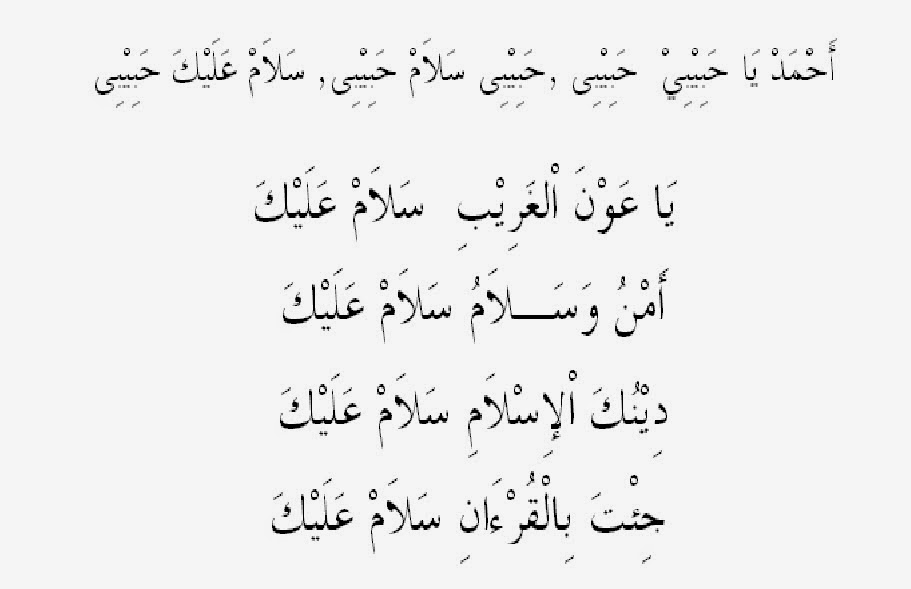 أَحْمَدْ يَا حَبِيْبِيْ حَبِيْبِى ,حَبِيْبِى سَلاَمْ حَبِيْبِى, سَلاَمْ عَلَيْكَ حَبِيْبِى
يَا عَوْنَ اْلغَرِيْبِ سَلاَمْ عَلَيْكَ
أَمْنُ وَسَـــلاَمُ سَلاَمْ عَلَيْكَ
دِيْنُكَ اْلإِسْلاَمِ سَلاَمْ عَلَيْكَ
جِئْتَ بِالْقُرْءَانِ سَلاَمْ عَلَيْكَ